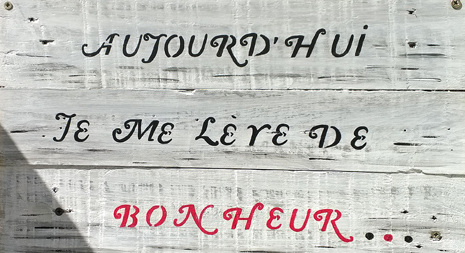 AUJOURD'HUi
JE ME LÈVE DE
BONHEUR...